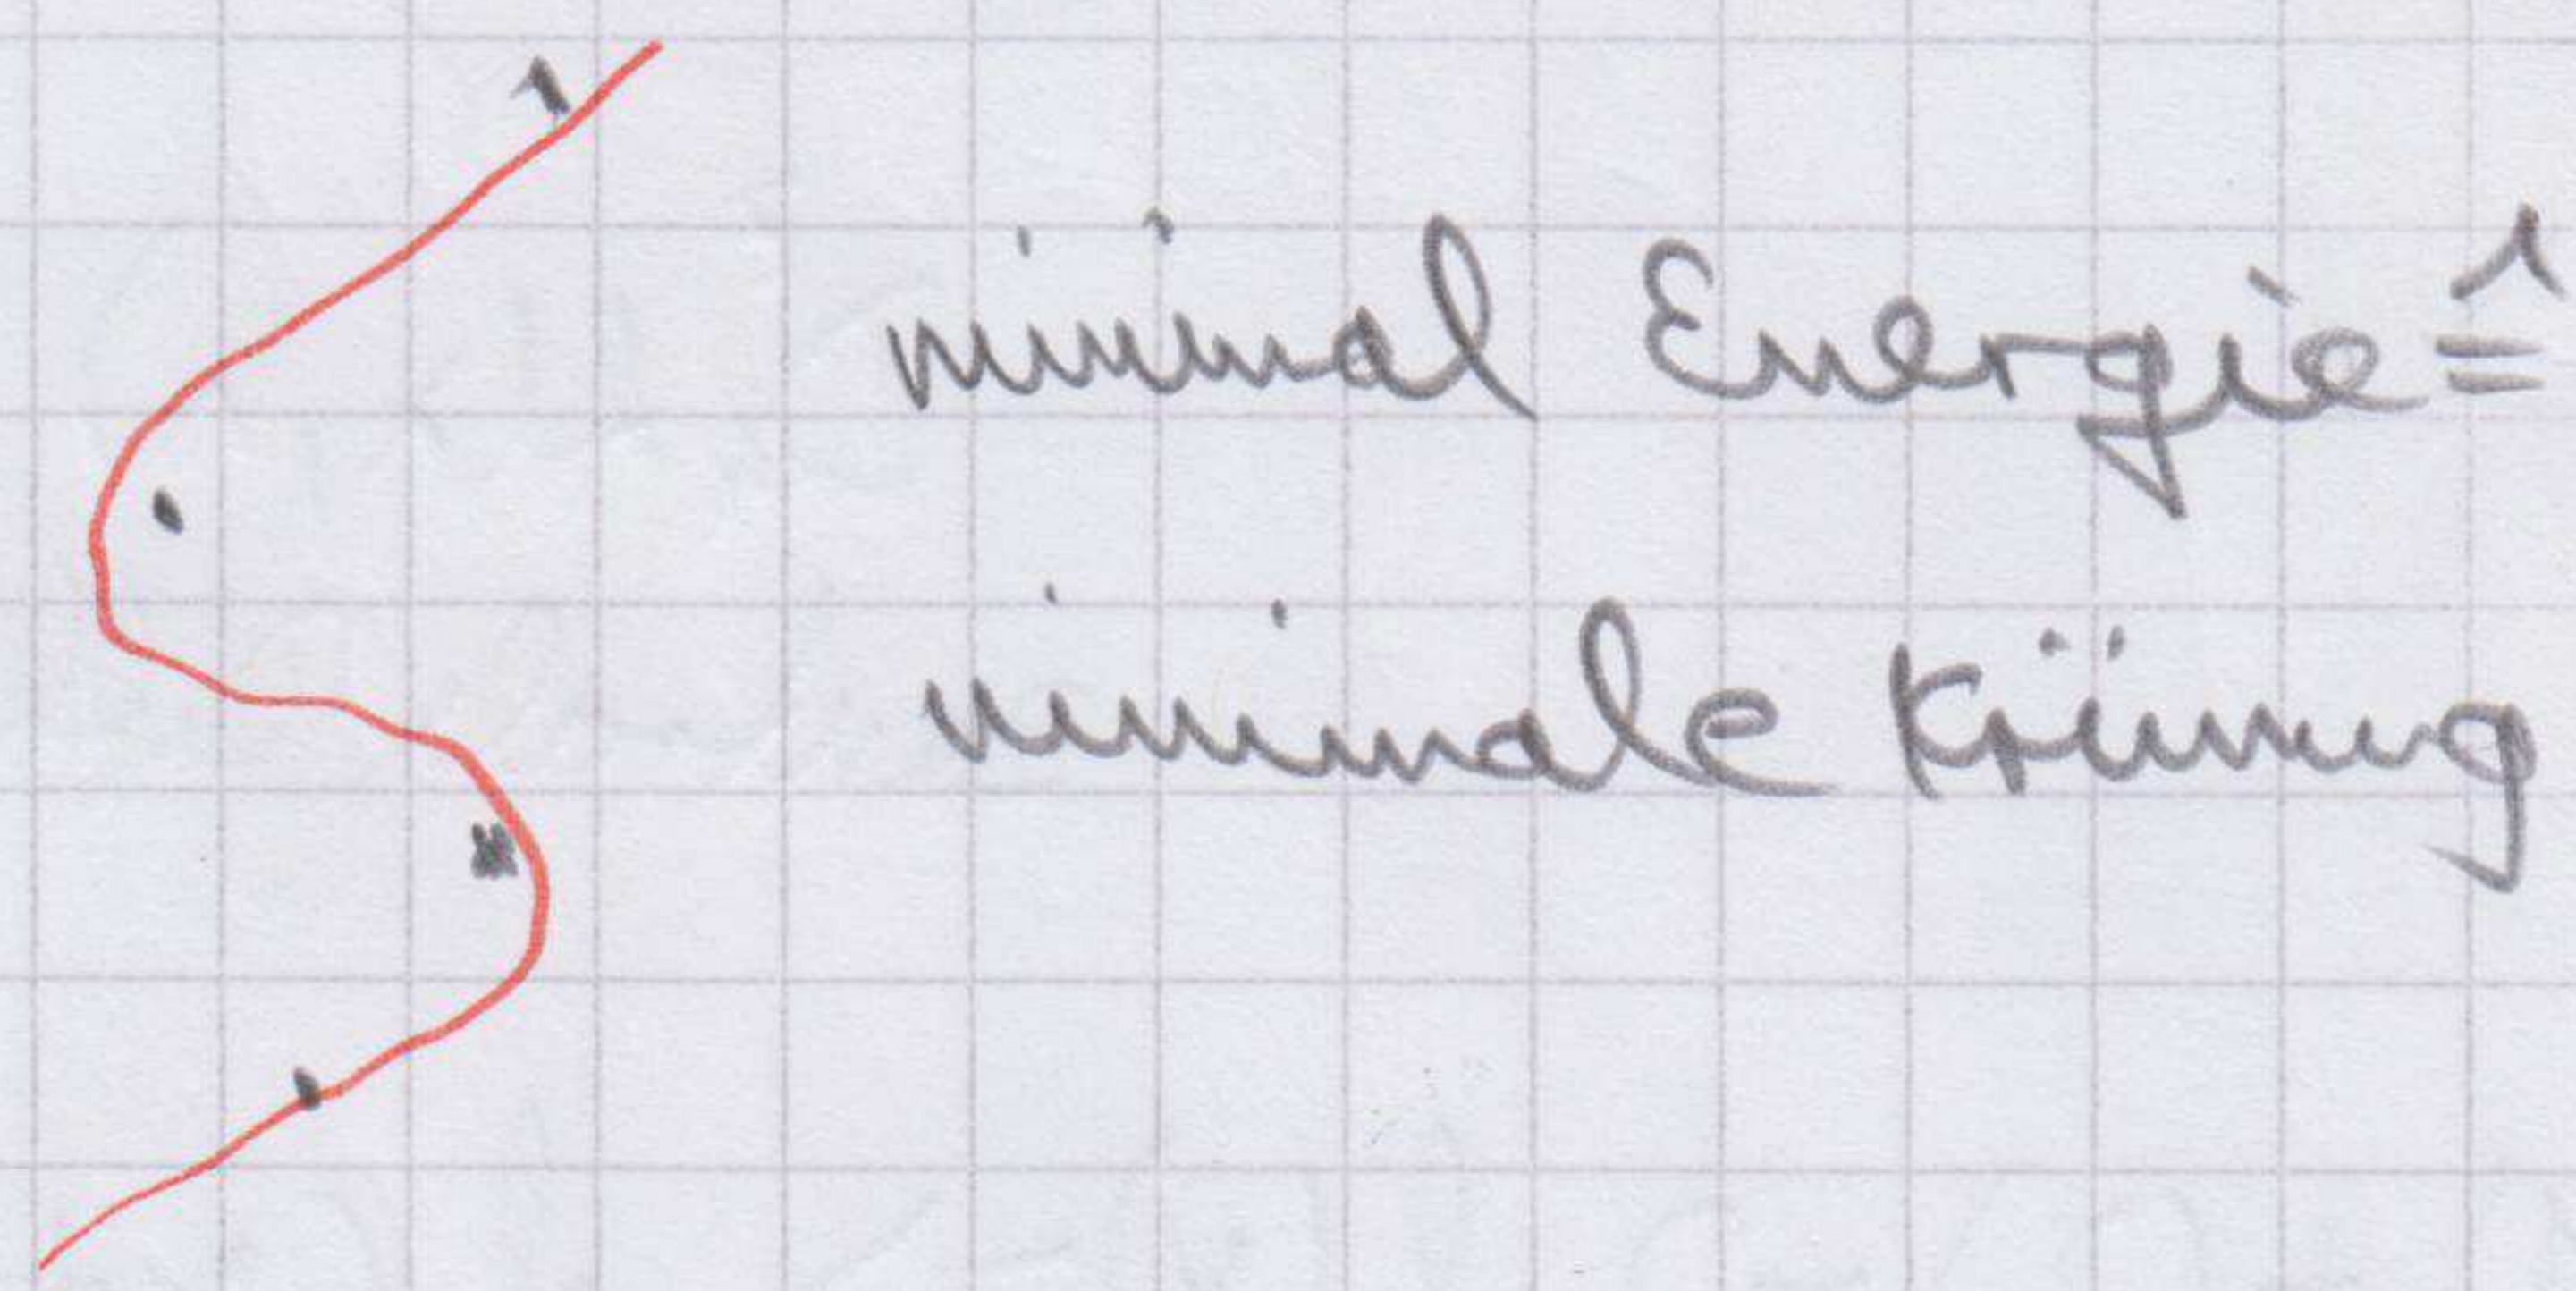 minimal Energie ≙
minimale Krümung